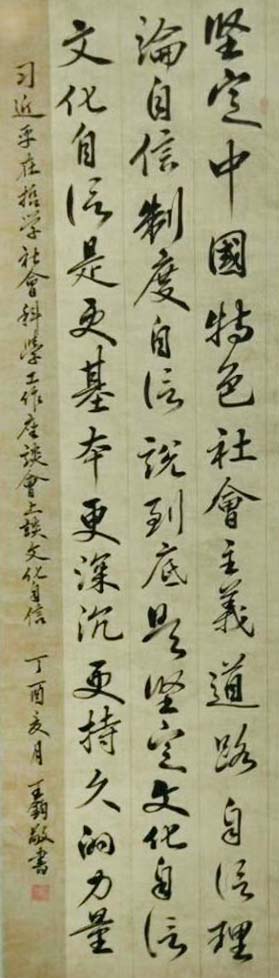 坚定中國特色社會主義道路自信理
論自信制度自信說到底是坚定文化自信
文化自信是更基本更深沉更持久的力量
习近平在哲学社會科學工作座談會上談文化自信 丁酉亥月 王 敬書